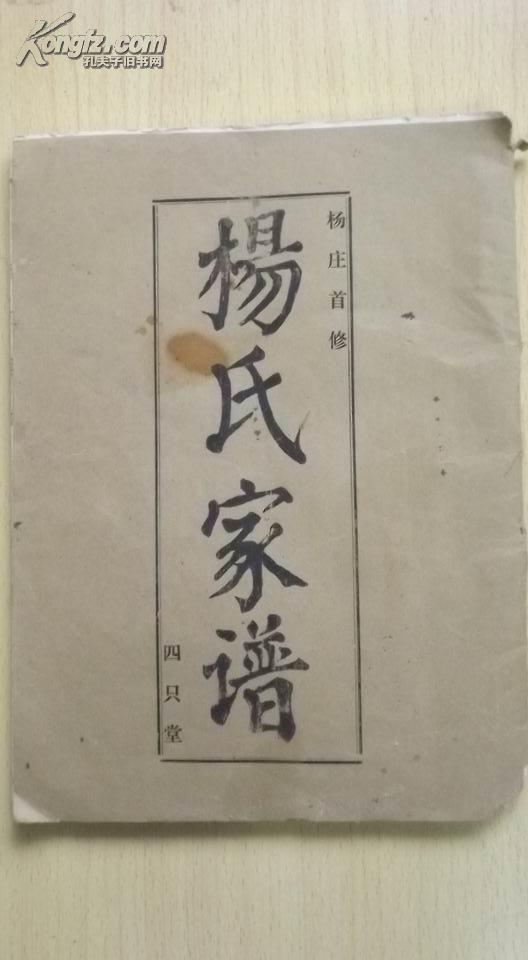 Kongfz.com
孔夫子旧书网
杨庄首修
楊氏家谱
四只堂